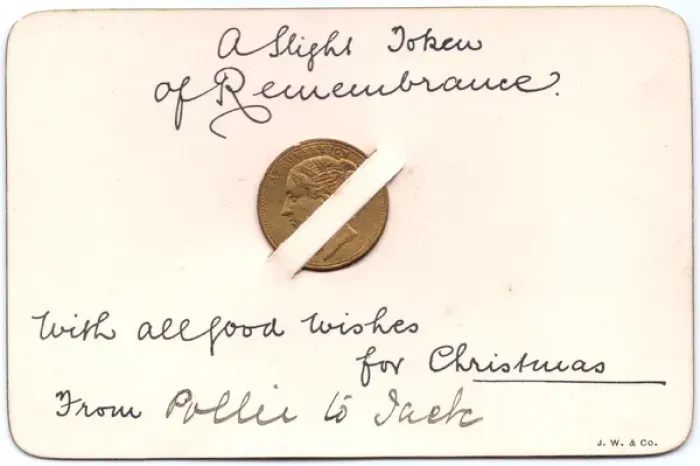 A Slight Token
of Remembrance.
SOVEREIGN
With all good Wishes
for Christmas
From Pollie to Jack
J. W. & Co.